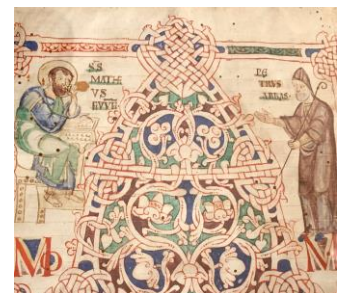 S S
MATHE
VS
PE
TRVS
ABBAS
M
M